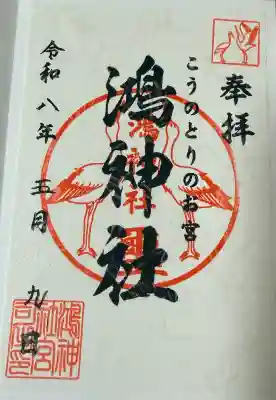 奉拝
こうのとりのお宮
鴻神社
鴻神社
令和八年 五月 九日
鴻神
社宮
司印